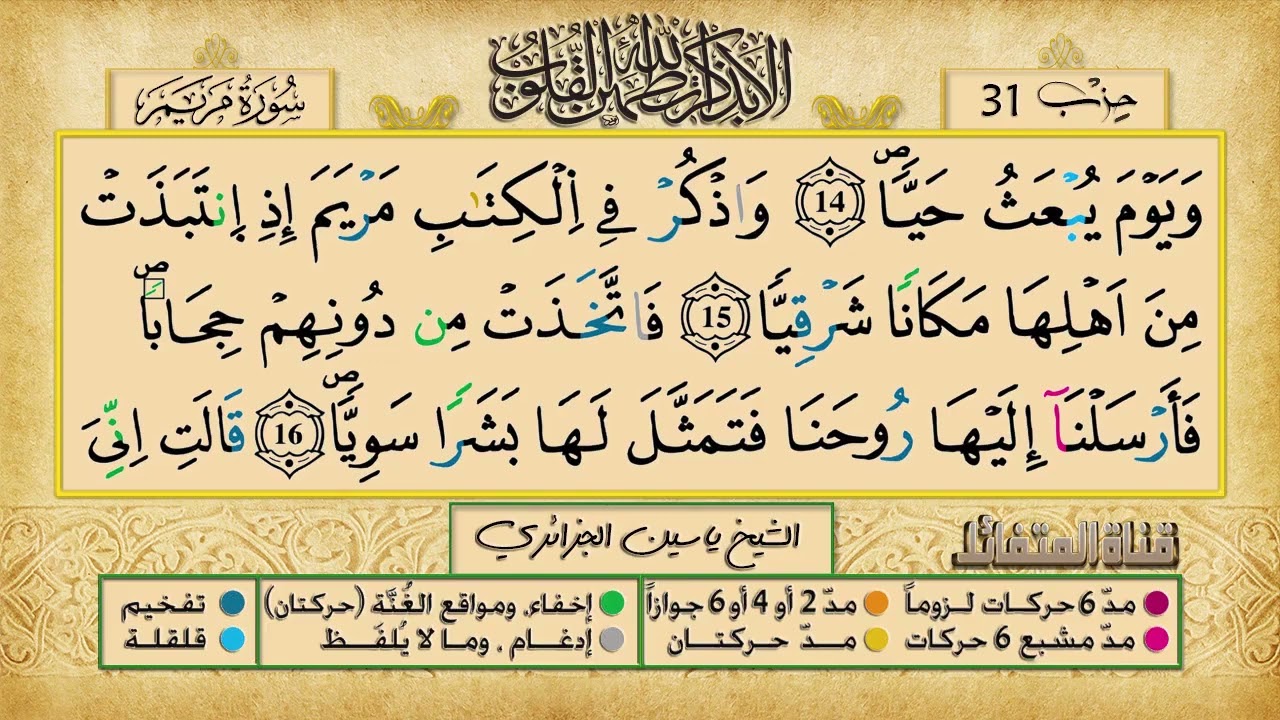 ألا بذكر الله تطمئن القلوب
حزب 31
سُورَةُ مَرْيَمَ
وَيَوْمَ يُبْعَثُ حَيّٗاۖ 14 وَاذْكُرْ فِے اِ۬لْكِتَٰبِ مَرْيَمَ إِذِ اِ۪نتَبَذَتْ
مِنَ اَهْلِهَا مَكَانٗا شَرْقِيّٗا 15 فَاتَّخَذَتْ مِن دُونِهِمْ حِجَاباٗۖ
فَأَرْسَلْنَآ إِلَيْهَا رُوحَنَا فَتَمَثَّلَ لَهَا بَشَرٗا سَوِيّٗاۖ 16 قَالَتِ اِنِّيَ
الشيخ ياسين الجزائري
قناة المتفائل
مدّ 6 حركات لـزوماً
مدّ 2 أو 4 أو 6 جوازاً
إخفاء، ومواقع الغُنَّة (حركتان)
تفخيم
مدّ مشبع 6 حركات
مـدّ حـركتـان
إدغـام ، ومـا لا يُلفَـظ
قلقلة